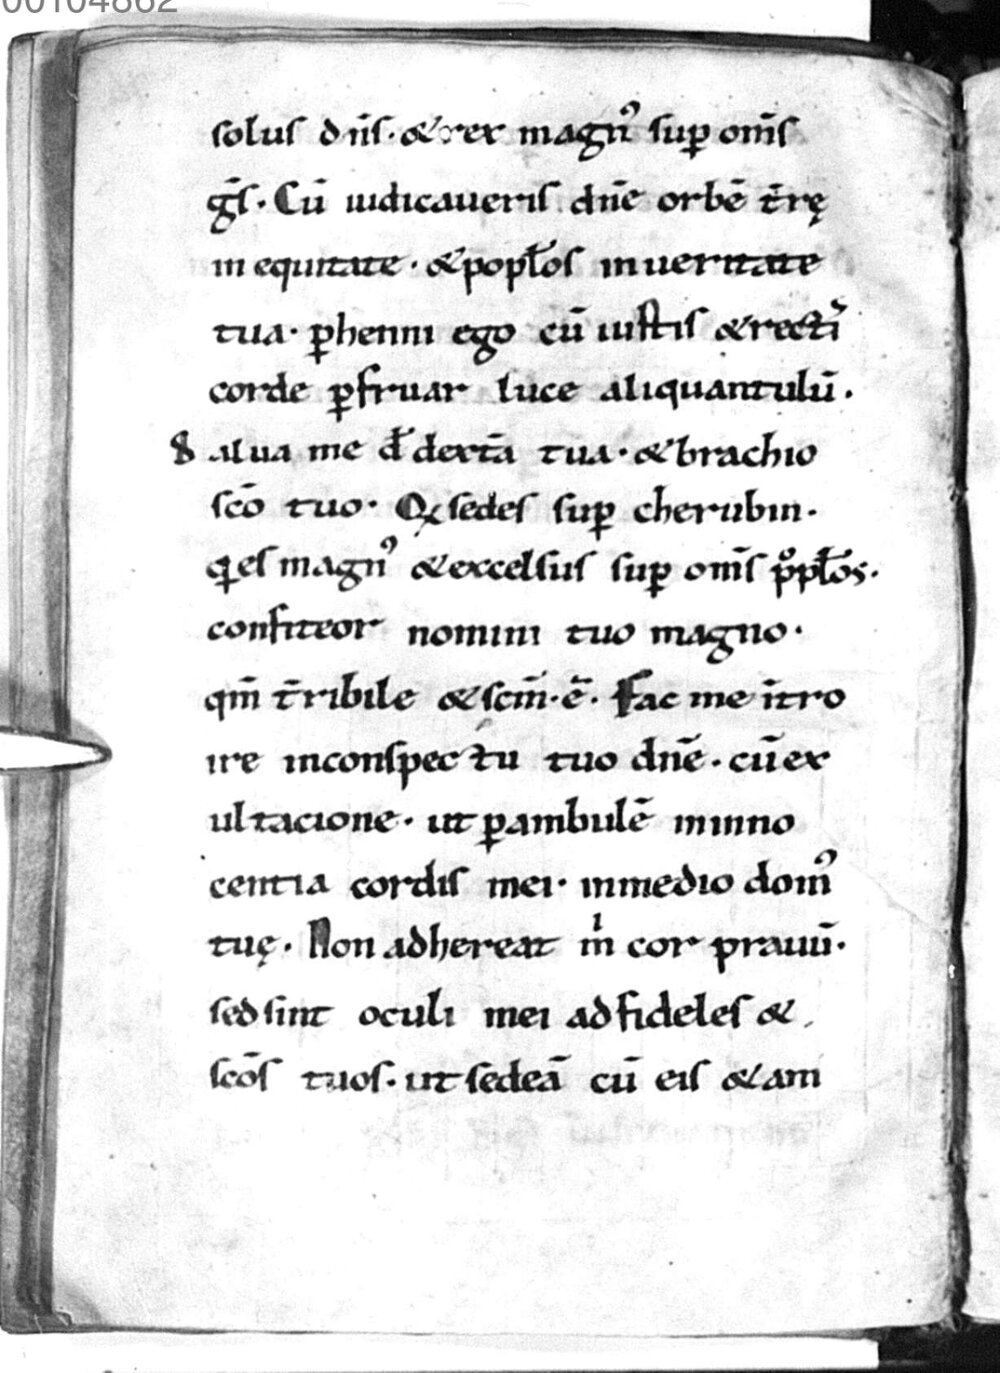 00104862
solus dn̄s. & rex magnꝰ suꝑ om̄s
gs̄. Cū iudicaueris dn̄e orbē t̄rę
in equitate. & popłos in ueritate
tua. ꝑhenni ego cū iustis & recti
corde ꝑfruar luce aliquantulū.
Salua me ds̄ dextā tua. & brachio
sc̄o tuo. Qͥ sedes suꝑ cherubin.
qͥ es magnꝰ & excelsus suꝑ om̄s pͦpłos.
confiteor nomini tuo magno.
qm̄ t̄ribile & scm̄. ē. Fac me ītro
ire in conspectu tuo dn̄e. cū ex
ultacione. ut ꝑambulē in inno
centia cordis mei. in medio domꝰ
tuę. Non adhereat mͥ cor prauū.
sed sint oculi mei ad fideles &
sc̄os tuos. ut sedeā cū eis & am